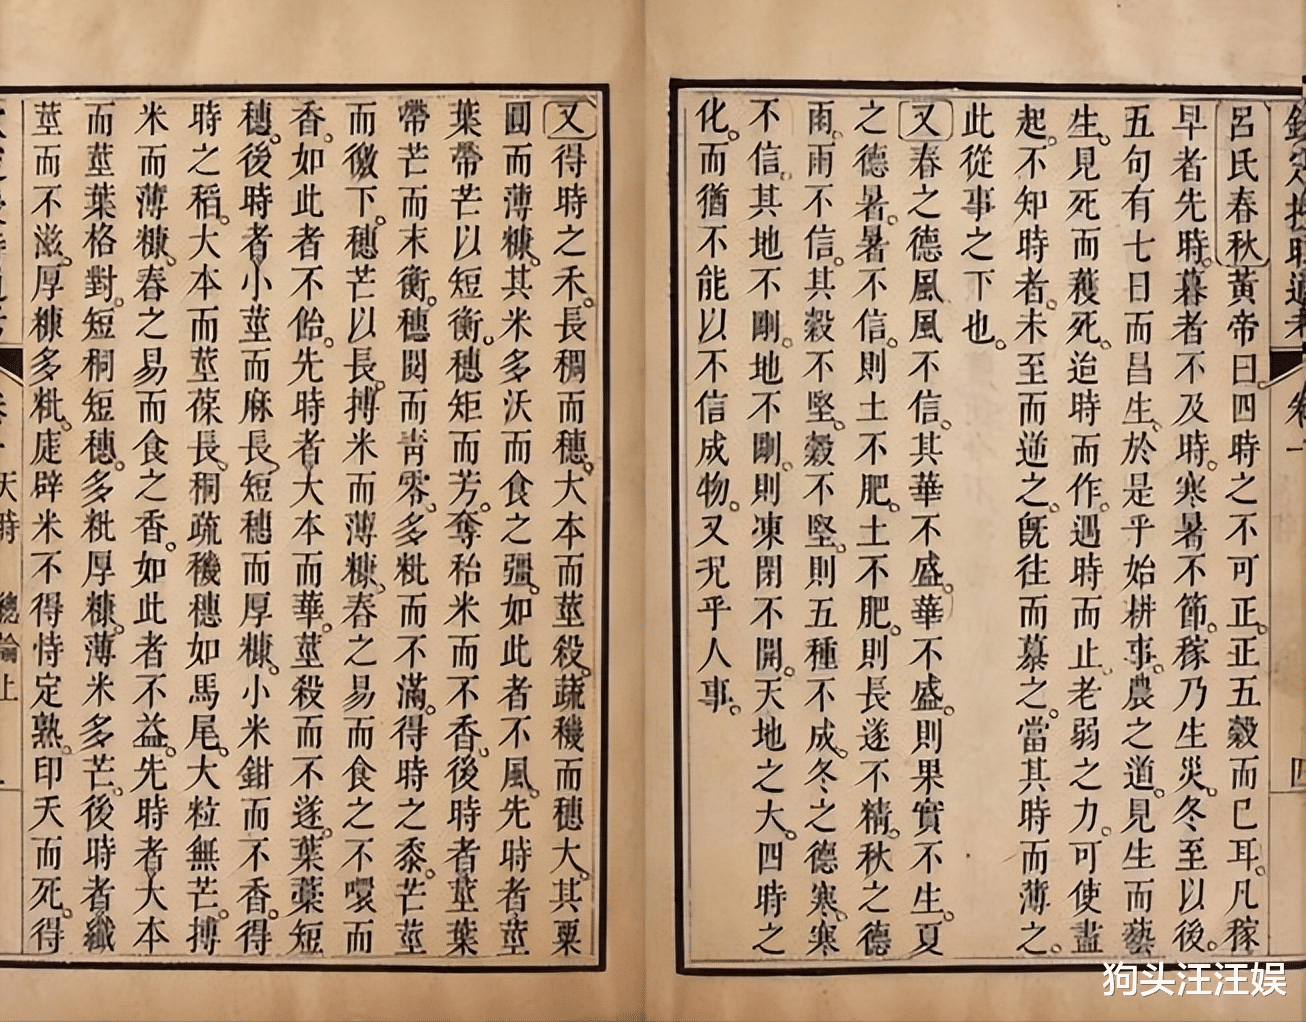 欽定授時通考 卷一 四
呂氏春秋黃帝曰。四時之不可正。正五穀而已耳。凡稼
早者先時。暮者不及時。寒暑不節。稼乃生災。冬至以後。
五句有七日而昌生。於是乎始耕事。農之道。見生而藝
生。見死而穫死。迨時而作。遇時而止。老弱之力。可使盡
起。不知時者。未至而逆之。旣往而慕之。當其時而薄之。
此從事之下也。
又春之德風。風不信。其華不盛。華不盛。則果實不生。夏
之德暑。暑不信。則土不肥。土不肥。則長遂不精。秋之德
雨。雨不信。其穀不堅。穀不堅。則五種不成。冬之德寒。寒
不信。其地不剛。地不剛。則凍閉不開。天地之大。四時之
化。而猶不能以不信成物。又況乎人事。
又得時之禾。長稠而穗。大本而莖殺。蔬穖而穗大。其粟
圓而薄糠。其米多沃而食之彊。如此者不風。先時者莖
葉帶芒以短衡。穗矩而芳。奪秴米而不香。後時者莖葉
帶芒而末衡。穗閱而靑零。多粃而不滿。得時之黍。芒莖
而徼下。穗芒以長。摶米而薄糠。舂之易而食之不噮而
香。如此者不飴。先時者大本而華。莖殺而不遂。葉藁短
穗。後時者小莖而麻長。短穗而厚糠。小米鉗而不香。得
時之稻。大本而莖葆長。秱疏穖穗如馬尾。大粒無芒。摶
米而薄糠。舂之易而食之香。如此者不益。先時者大本
而莖葉格對。短秱短穗。多粃厚糠。薄米多芒。後時者纖
莖而不滋。厚糠多粃。庢辟米不得恃定熟。卬天而死。得
天時 總論上
狗头汪汪娱